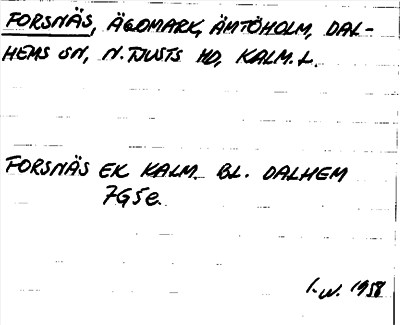 FORSNÄS, ÄGOMARK, ÄMTÖHOLM, DAL-
HEMS SN, N. TJUSTS HD, KALM. L.
FORSNÄS EK KALM. BL. DALHEM
7G5e.
I.W. 1958